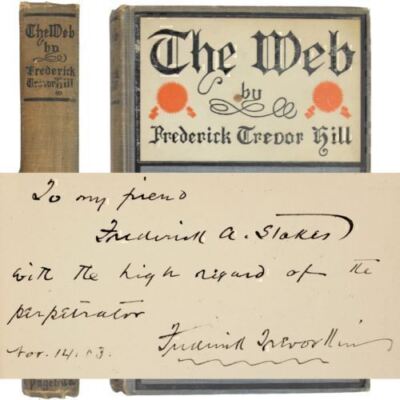 The Web
by
Frederick
Trevor Hill
The Web
by
Frederick Trevor Hill
To my friend
Frederick A. Stokes
with the high regard of the
perpetrator
Nov. 14. 03.
Frederick Trevor Hill